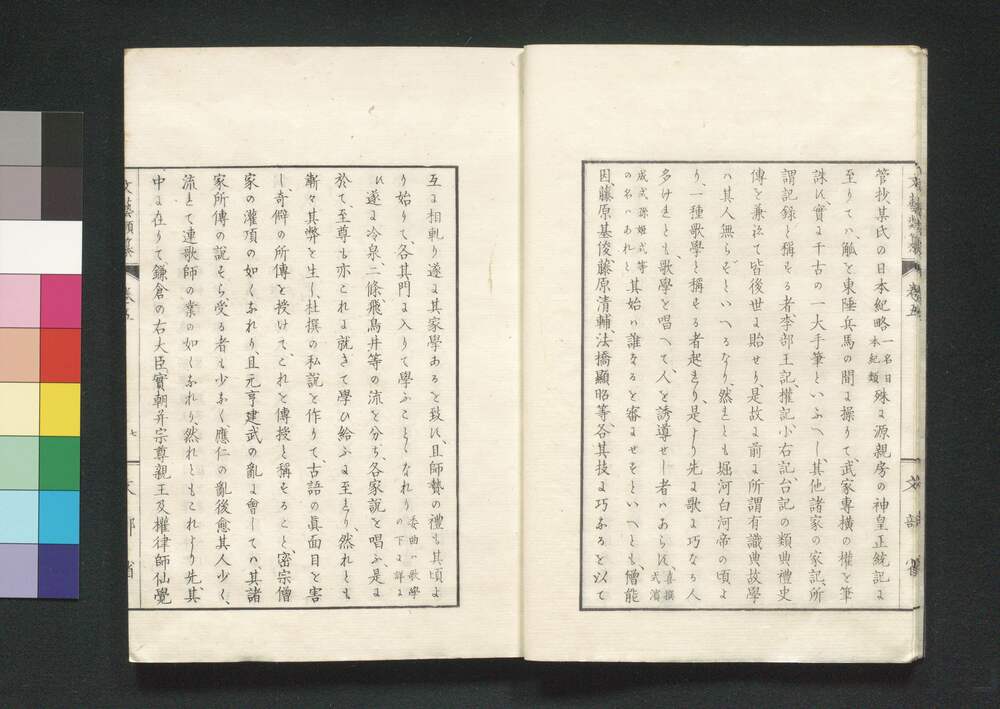 管抄某氏の日本紀略一名日本紀類殊ニ源親房の神皇正統記ニ
至りてハ、觚と東陲兵馬の間ニ操りて、武家專横の權と筆
誅に、實ニ千古の一大手筆といふへし、其他諸家の家記、所
謂記録と稱する者李部王記、權記小右記、台記の類典禮史
傳と兼ねて皆後世ニ貽せり、是故ニ前ニ所謂有識典故學
ハ其人無らぞといへるなり、然れとも堀河白河帝の頃よ
り、一種歌學と稱する者起れり、是より先ニ歌ニ巧なる人
多けれとも、歌學と唱へて、人と誘導せし者ハあらに、喜撰式濱
成式孫姫式等の名ハあれと其始ハ誰なると審ませそといへとも、僧能
因藤原基俊、藤原清輔、法橋顯昭等、各其技ニ巧なると以て
文部省
互ニ相軋り遂ニ其家學あると致に、且師贄の禮も其頃よ
り始りて、各其門ニ入りて學ふことゝなれり委曲ハ歌學の下ニ詳ニ
に遂ニ冷泉二條飛鳥井等の流と分ち、各家説と唱ふ、是ニ
於て、至尊も亦これニ就きて學ひ給ふニ至より、然れとも
漸々其弊と生し、杜撰の私説と作りて、古語の眞面目と害
し、奇僻の所傳と授けて、これと傳授と稱すること、密宗僧
家の灌頂の如くふれり、且元亨建武の亂ニ會してハ、其諸
家所傳の説すら、受る者も少ふく應仁の亂後愈其人少く、
流れて連歌師の業の如くふれり、然れともこれより先、其
中ニ在りて鎌倉の右大臣實朝并宗尊親王及權律師仙覺
文藝類纂 卷五 七 文部省